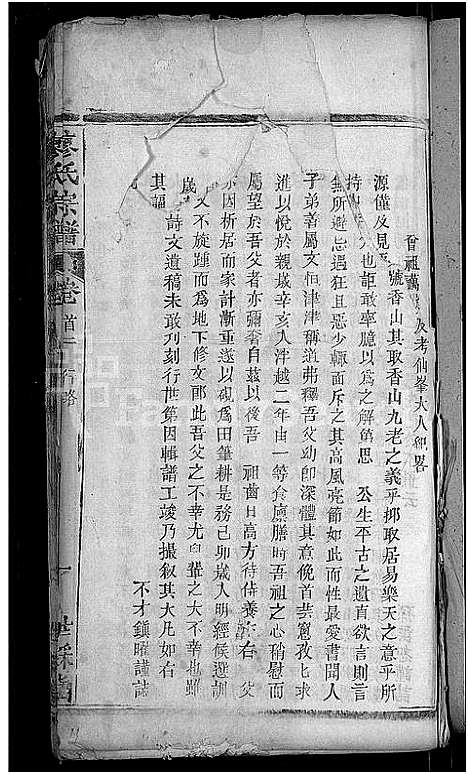 曾祖萬友考仙峯大人節畧
源僅及見吾號香山其取香山九老之義乎抑取居易樂天之意乎所
持也詎敢率臆以為之解第思 公生平古之遺直欲言則言
無所避忌遇狂且惡少輒面斥之其高風亮節如此而性最愛書聞人
子弟著屬文恒津津稱道弗釋吾父幼即深體其意俛首芸窻孜孜求
進以悅於親歲辛亥入泮越二年由一等食廩膳時吾祖之心稍慰而
屬望於吾父者亦彌奢自茲以後吾 祖齒日高方待侍養右 父
亦因析居而家計漸重遂以硯為田筆耕是務己卯歲人明經候選訓
歲又不旋踵而為地下修文郎此吾父之不幸尤自輩之大不幸也雖
詩文遺稿未敢刋刻行世第因輯譜工竣乃撮叙其大凡如右
其謳
不才鎮曜謹誌
廖氏宗譜
卷首二 行略
十
世綵堂